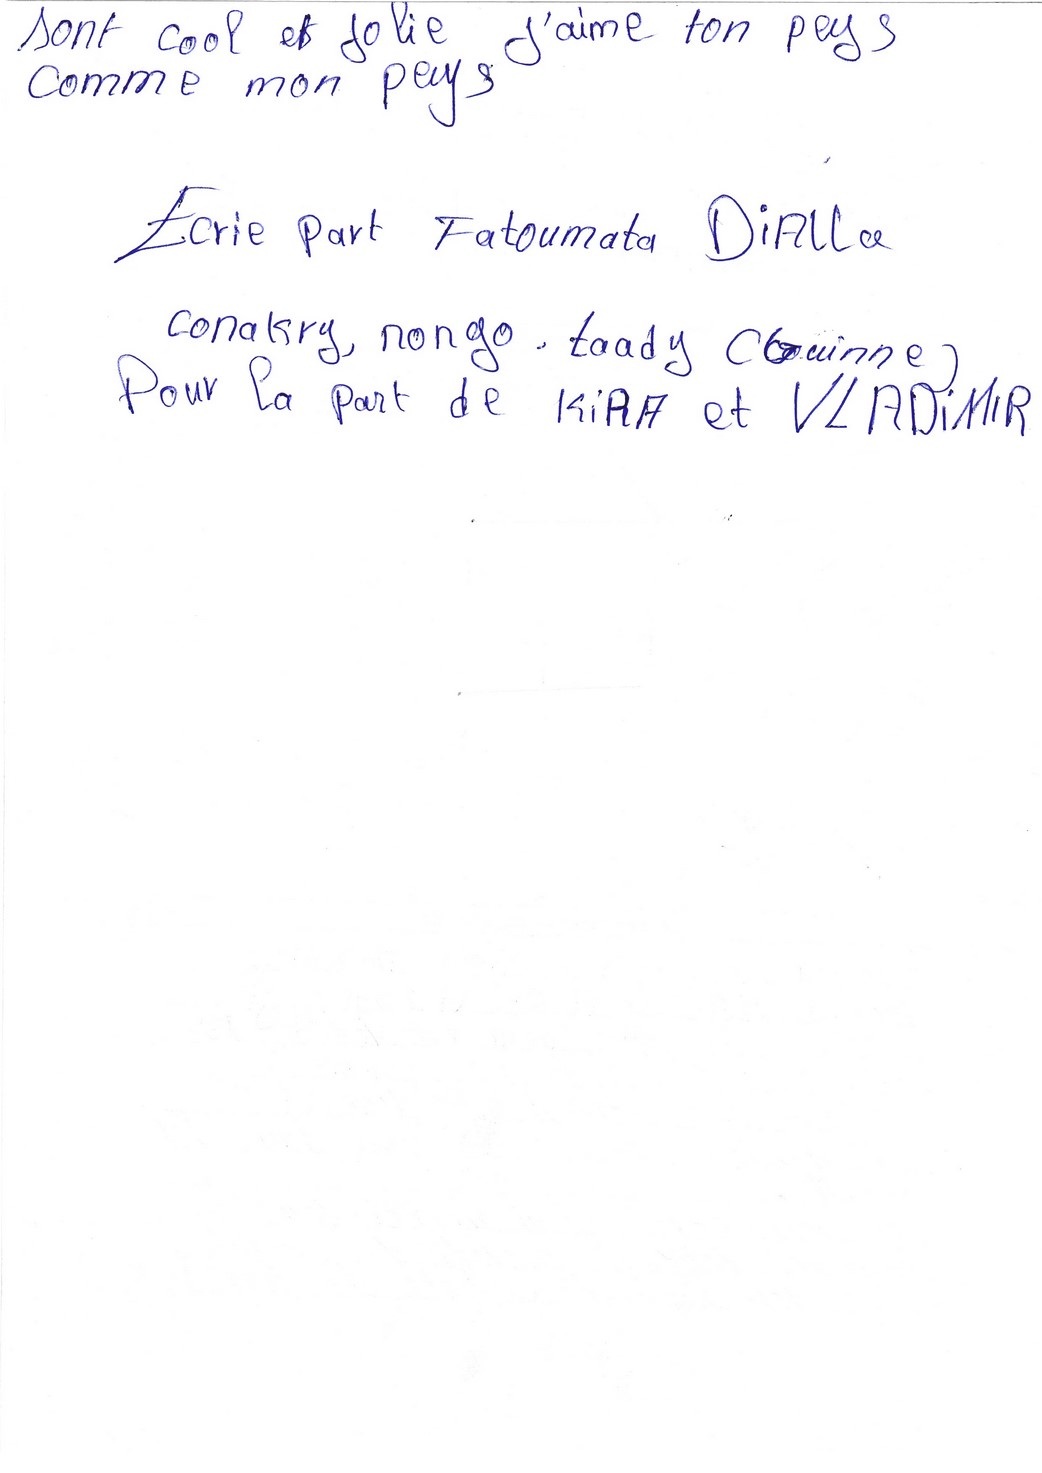 sont cool et jolie j'aime ton pays
comme mon pays
Ecrie part Fatoumata DiAlla
conakry, nongo. taady (Guinne)
Pour la part de KiRA et VLADiMIR